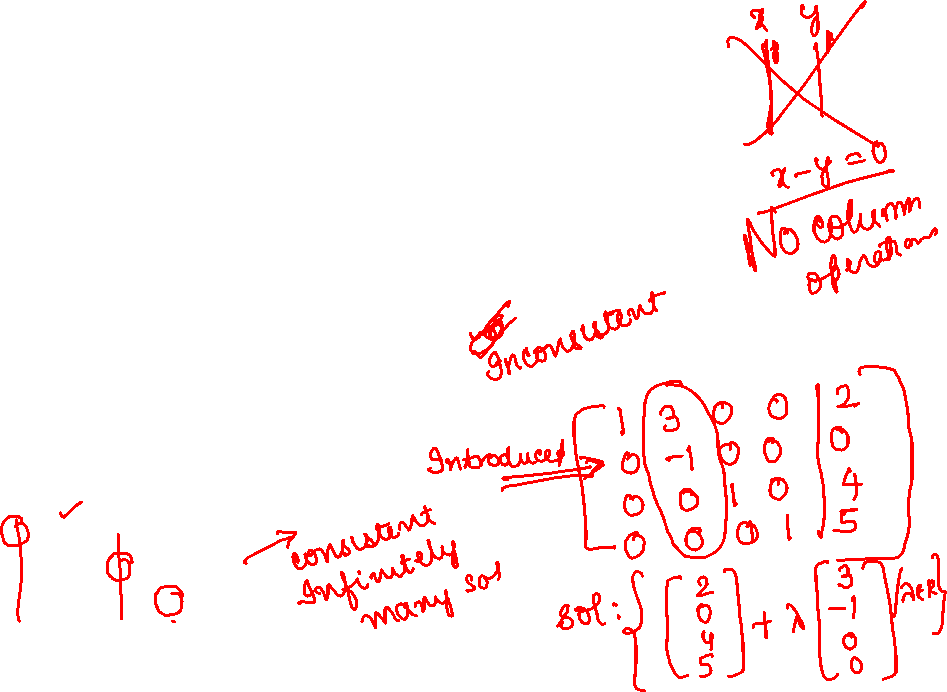 x y
x-y=0
No column
operations
Inconsistent
Introduced
1 3 0 0 | 2
0 -1 0 0 | 0
0 0 1 0 | 4
0 0 0 1 | 5
consistent
Infinitely
many sol
sol: { [2 0 4 5] + λ [3 -1 0 0] / λ∈R }